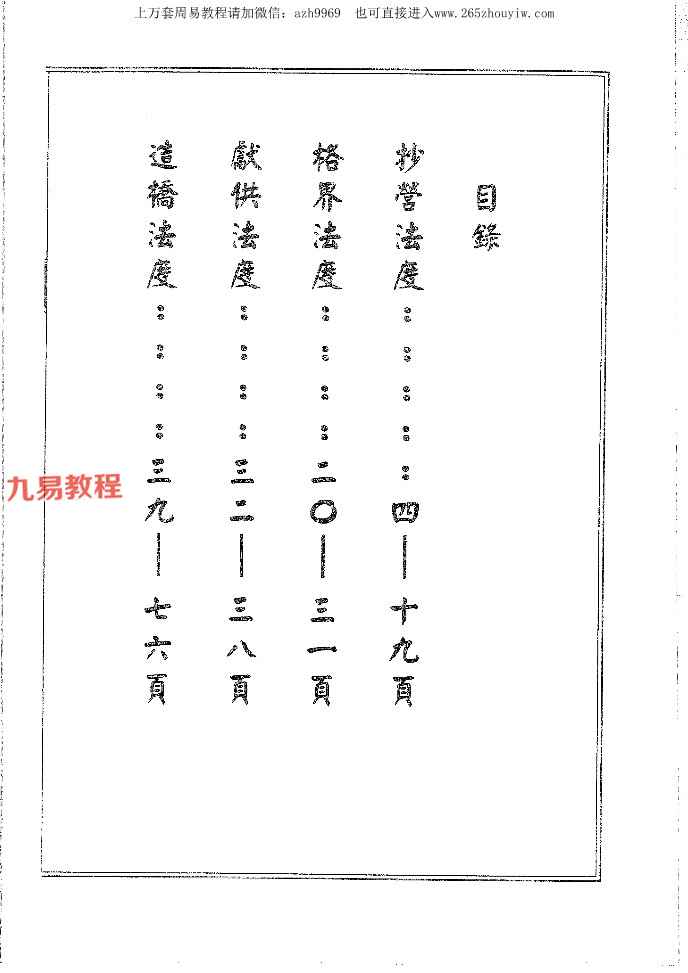 上万套周易教程请加微信：azh9969 也可直接进入www.265zhouyiw.com
目錄
抄營法度：：：：：四—十九頁
格界法度：：：：二〇—三一頁
獻供法度：：：：三二—三八頁
造橋法度：：：：三九—七六頁
九易教程